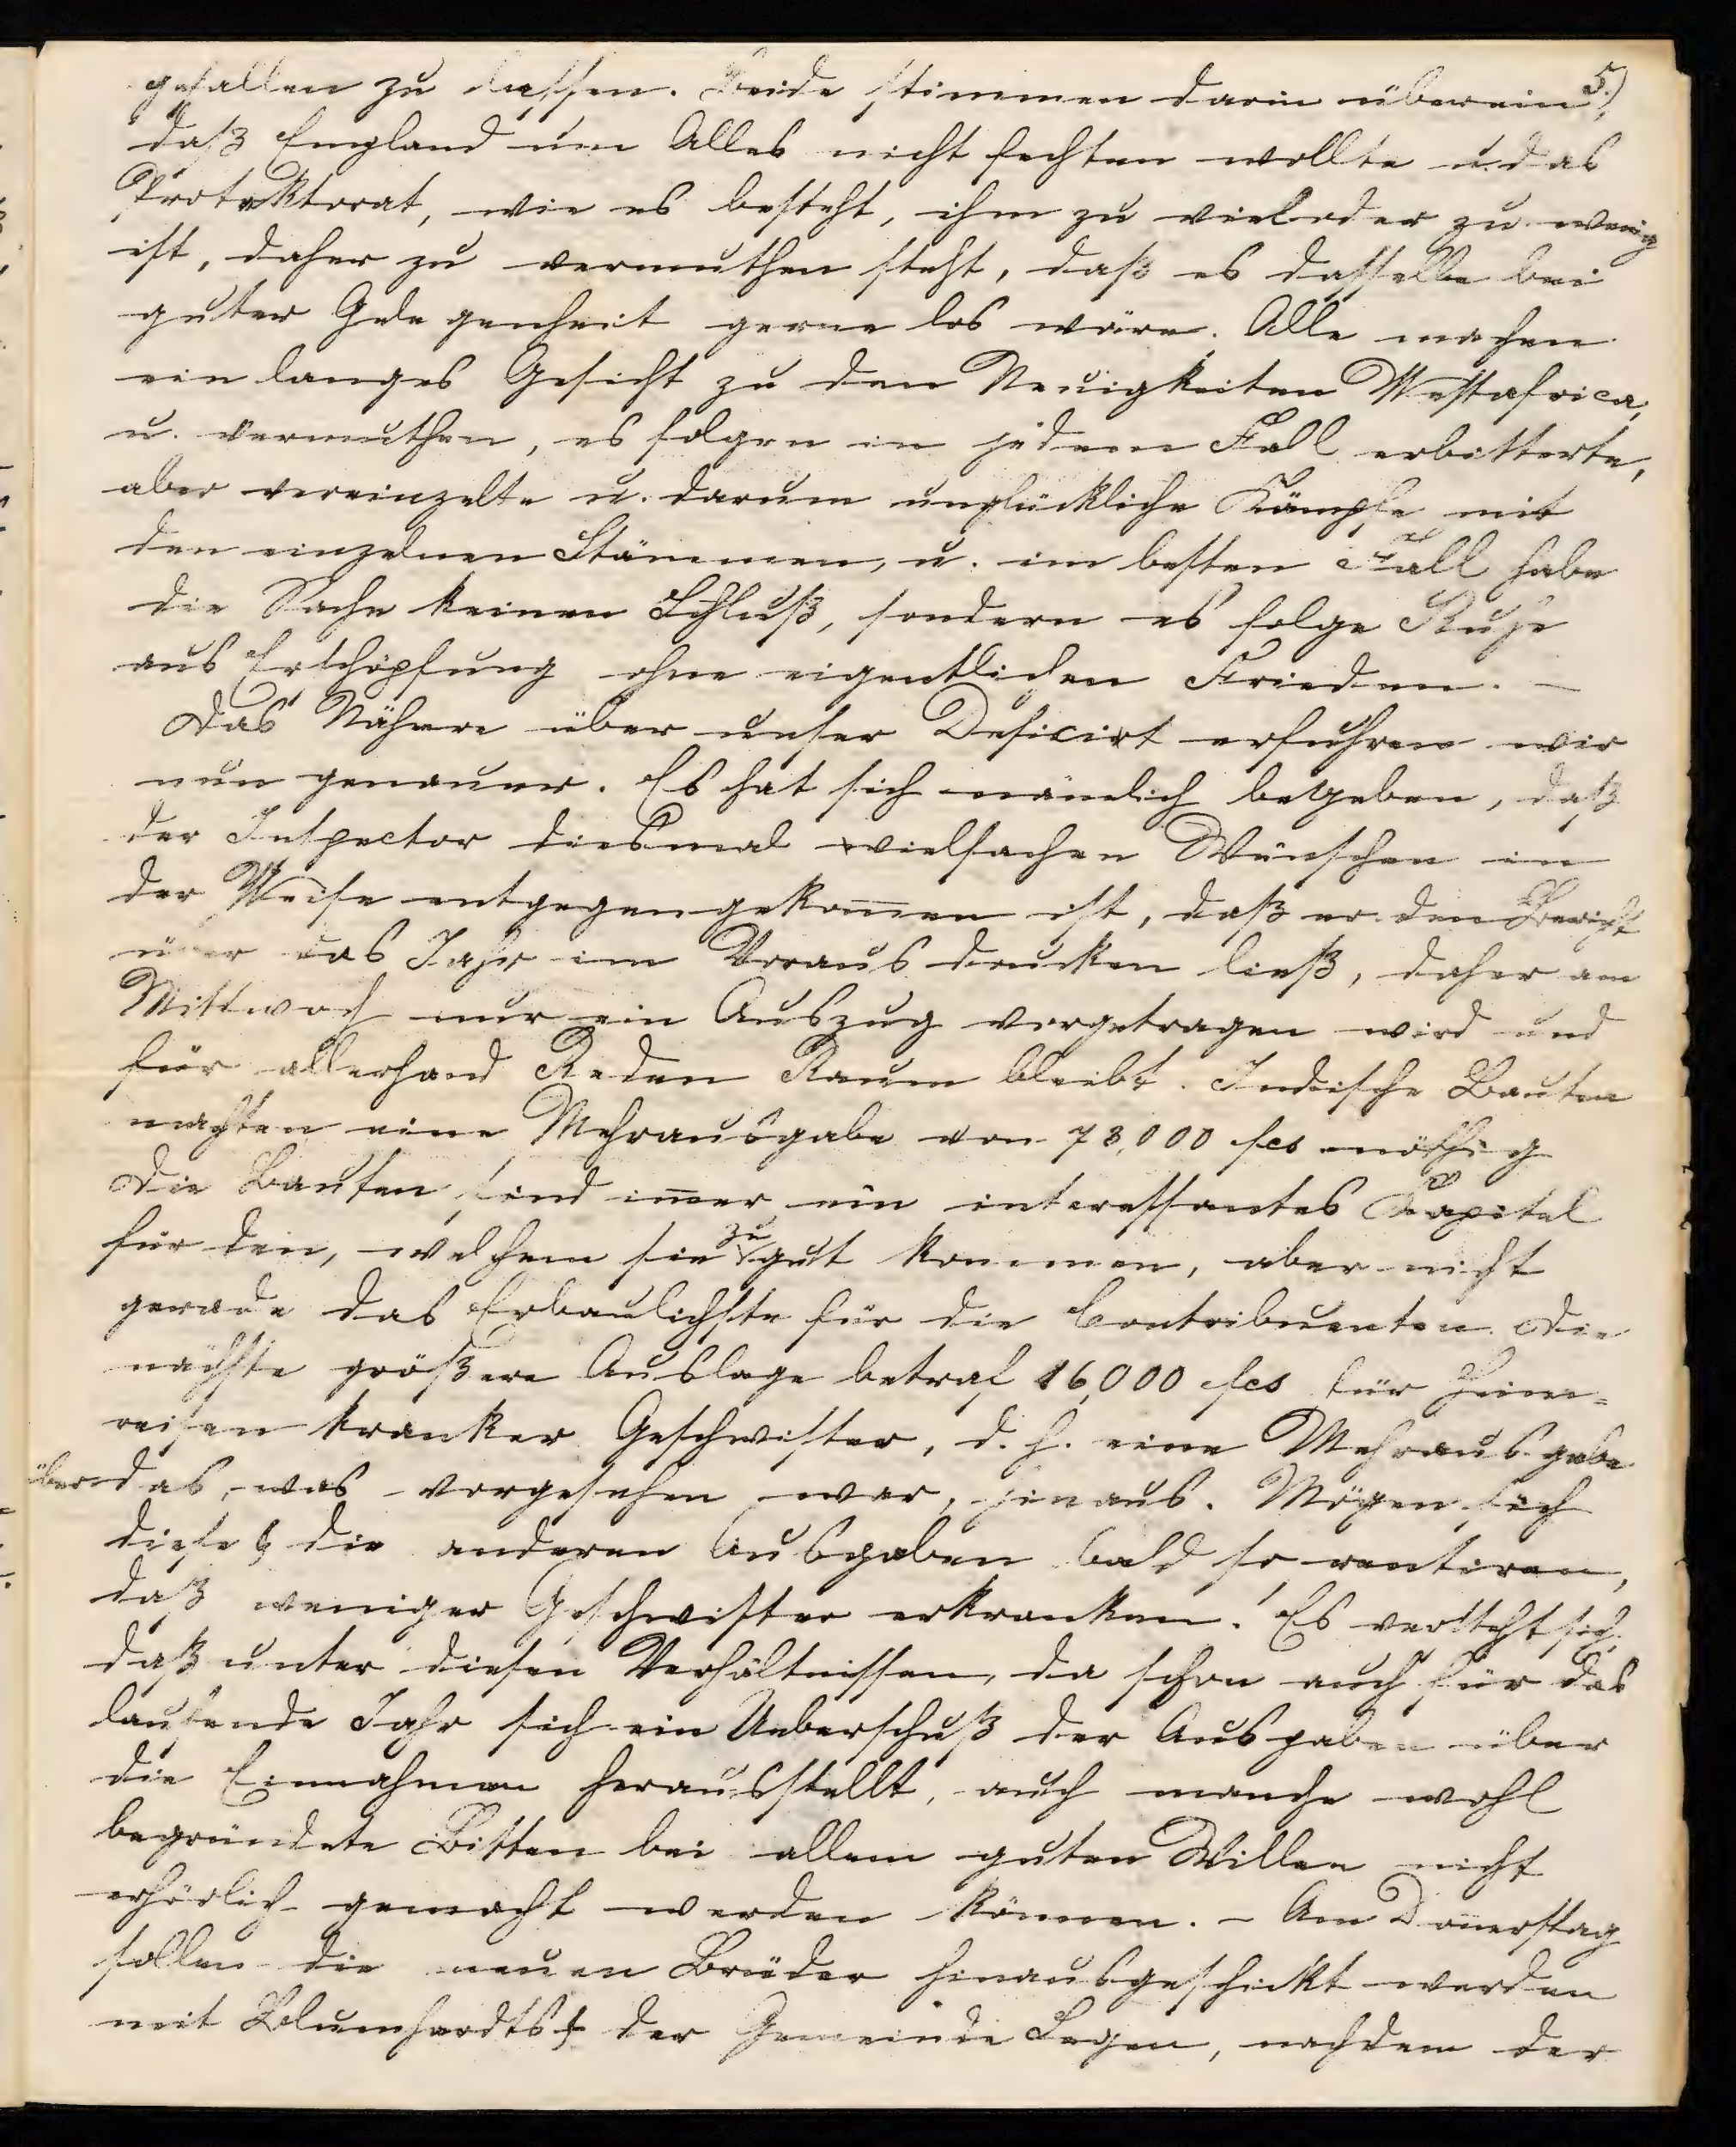 5.)
gefallen zu lassen. Beide stimmen darin überein,
daß England um Alles nicht fechten wollte u. das
Protektorat, wie es besteht, ihm zu viel oder zu wenig
ist, daher zu vermuthen steht, daß es dasselbe bei
guter Gelegenheit gerne los wäre. Alle machen
ein langes Gesicht zu den Neuigkeiten Westafrica,
u. vermuthen, es folgen in jedem Fall erbitterte,
aber vereinzelte u. darum unglückliche Kämpfe mit
den einzelnen Stämmen, u. im besten Fall habe
die Sache keinen Schluß, sondern es folge Ruhe
aus Erschöpfung ohne eigentlichen Frieden. —
Das Nähere über unser Deficit erfuhren wir
nun genauer. Es hat sich nämlich begeben, daß
der Inspector diesmal vielfachen Wünschen in
der Weise entgegengekom̅en ist, daß er den Bericht
über das Jahr im Voraus drucken ließ, daher am
Mittwoch nur ein Auszug vorgetragen wird und
für allerhand Reden Raum bleibt. Indische Bauten
machten eine Mehrausgabe von 73,000 fcs nöthig
Die Bauten sind im̅er ein interessantes Kapitel
für den, welchem sie zu gut kommen, aber nicht
gerade das Erbaulichste für die Contribuenten. Die
nächste größere Auslage betraf 16,000 fcs für Heim=
reisen kranker Geschwister, d. h. eine Mehrausgabe
über das, was vorgesehen war, hinaus. Mögen sich
diese & die anderen Ausgaben bald so rentiren,
daß weniger Geschwister erkranken! Es versteht sich,
daß unter diesen Verhältnissen, da schon auch für das
laufende Jahr sich ein Ueberschuß der Ausgaben über
die Einnahmen herausstellt, auch manche wohl
begründete Bitten bei allem guten Willen nicht
erhörlich gemacht werden können. – Am Don̅erstag
sollen die neuen Brüder hinausgeschickt werden
mit Blumhardts & der Gemeinde Segen, nachdem der